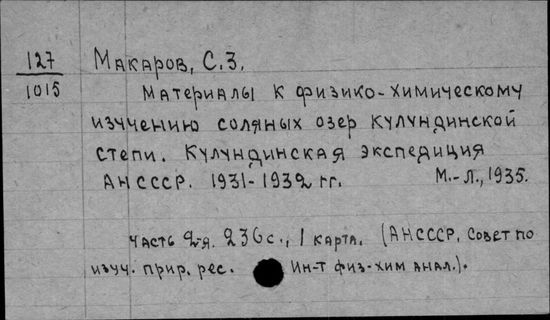 127
1015
Макаров, С.З.
Материалы к физико-химическому
изучению соляных озер Кулундинской
степи. Кулундинская экспедиция
АНСССР. 1931-1932 гг. М.-Л., 1935.
Часть 2-я. 236с., 1 карта. (АНСССР. Совет по
изуч. прир. рес. Ин-т физ-хим анал.).